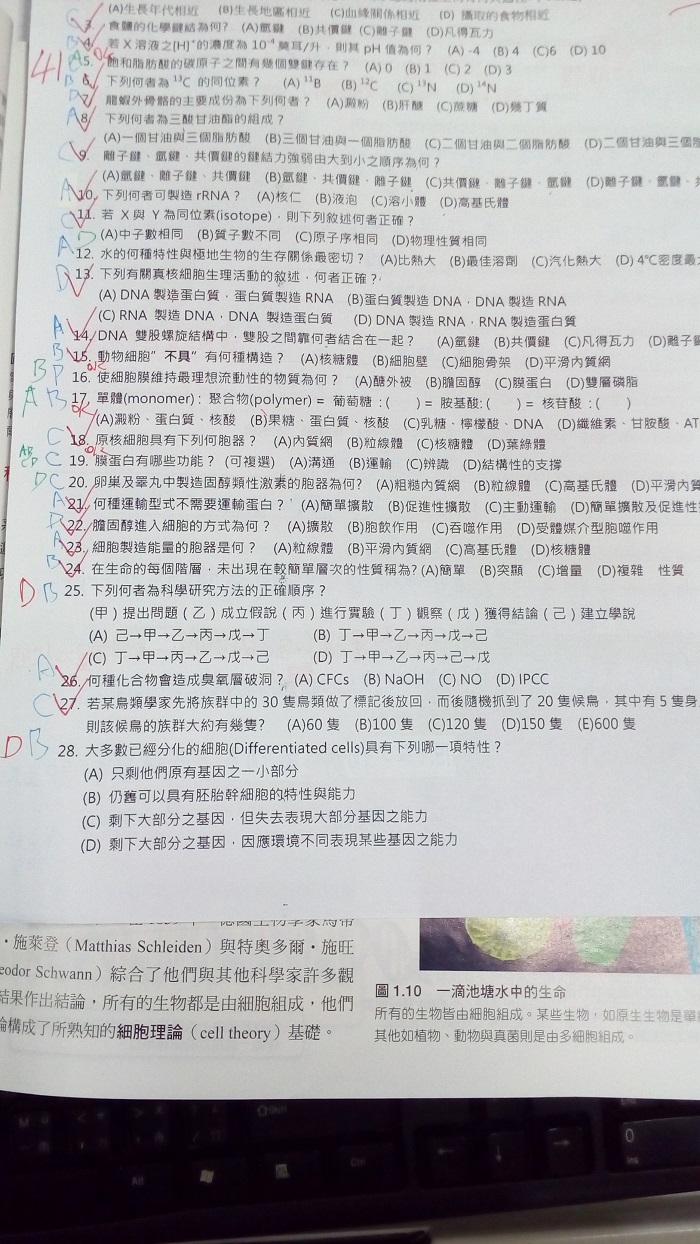 (A)生長年代相近 (B)生長地區相近 (C)血緣關係相近 (D) 攝取的食物相近
3. 食鹽的化學鍵結為何? (A)氫鍵 (B)共價鍵 (C)離子鍵 (D)凡得瓦力
4. 若 X 溶液之[H]⁺的濃度為 10⁻⁴ 莫耳/升，則其 pH 值為何？ (A) -4 (B) 4 (C)6 (D) 10
5. 飽和脂肪酸的碳原子之間有幾個雙鍵存在？ (A) 0 (B) 1 (C) 2 (D) 3
6. 下列何者為 ¹³C 的同位素？ (A) ¹¹B (B) ¹²C (C) ¹³N (D) ¹⁴N
7. 龍蝦外骨骼的主要成份為下列何者？ (A)澱粉 (B)肝醣 (C)蔗糖 (D)幾丁質
8. 下列何者為三酸甘油酯的組成？
(A)一個甘油與三個脂肪酸 (B)三個甘油與一個脂肪酸 (C)二個甘油與二個脂肪酸 (D)二個甘油與三個
9. 離子鍵、氫鍵、共價鍵的鍵結力強弱由大到小之順序為何？
(A)氫鍵、離子鍵、共價鍵 (B)氫鍵、共價鍵、離子鍵 (C)共價鍵、離子鍵、氫鍵 (D)離子鍵、氫鍵、
10. 下列何者可製造 rRNA？ (A)核仁 (B)液泡 (C)溶小體 (D)高基氏體
11. 若 X 與 Y 為同位素(isotope)，則下列敘述何者正確？
(A)中子數相同 (B)質子數不同 (C)原子序相同 (D)物理性質相同
12. 水的何種特性與極地生物的生存關係最密切？ (A)比熱大 (B)最佳溶劑 (C)汽化熱大 (D) 4℃密度最
13. 下列有關真核細胞生理活動的敘述，何者正確？
(A) DNA 製造蛋白質，蛋白質製造 RNA (B)蛋白質製造 DNA，DNA 製造 RNA
(C) RNA 製造 DNA，DNA 製造蛋白質 (D) DNA 製造 RNA，RNA 製造蛋白質
14. DNA 雙股螺旋結構中，雙股之間靠何者結合在一起？ (A)氫鍵 (B)共價鍵 (C)凡得瓦力 (D)離子
15. 動物細胞"不具"有何種構造？ (A)核糖體 (B)細胞壁 (C)細胞骨架 (D)平滑內質網
16. 使細胞膜維持最理想流動性的物質為何？ (A)醣外被 (B)膽固醇 (C)膜蛋白 (D)雙層磷脂
17. 單體(monomer)：聚合物(polymer) = 葡萄糖：( ) = 胺基酸：( ) = 核苷酸：( )
(A)澱粉、蛋白質、核酸 (B)果糖、蛋白質、核酸 (C)乳糖、檸檬酸、DNA (D)纖維素、甘胺酸、AT
18. 原核細胞具有下列何胞器？ (A)內質網 (B)粒線體 (C)核糖體 (D)葉綠體
19. 膜蛋白有哪些功能？(可複選) (A)溝通 (B)運輸 (C)辨識 (D)結構性的支撐
20. 卵巢及睪丸中製造固醇類性激素的胞器為何? (A)粗糙內質網 (B)粒線體 (C)高基氏體 (D)平滑內質
21. 何種運輸型式不需要運輸蛋白？ (A)簡單擴散 (B)促進性擴散 (C)主動運輸 (D)簡單擴散及促進性
22. 膽固醇進入細胞的方式為何？ (A)擴散 (B)胞飲作用 (C)吞噬作用 (D)受體媒介型胞噬作用
23. 細胞製造能量的胞器是何？ (A)粒線體 (B)平滑內質網 (C)高基氏體 (D)核糖體
24. 在生命的每個階層，未出現在較簡單層次的性質稱為? (A)簡單 (B)突顯 (C)增量 (D)複雜 性質
25. 下列何者為科學研究方法的正確順序？
(甲）提出問題（乙）成立假說（丙）進行實驗（丁）觀察（戊）獲得結論（己）建立學說
(A) 己→甲→乙→丙→戊→丁 (B) 丁→甲→乙→丙→戊→己
(C) 丁→甲→丙→乙→戊→己 (D) 丁→甲→乙→丙→己→戊
26. 何種化合物會造成臭氧層破洞？ (A) CFCs (B) NaOH (C) NO (D) IPCC
27. 若某鳥類學家先將族群中的 30 隻鳥類做了標記後放回，而後隨機抓到了 20 隻候鳥，其中有 5 隻身
則該候鳥的族群大約有幾隻? (A)60 隻 (B)100 隻 (C)120 隻 (D)150 隻 (E)600 隻
28. 大多數已經分化的細胞(Differentiated cells)具有下列哪一項特性？
(A) 只剩他們原有基因之一小部分
(B) 仍舊可以具有胚胎幹細胞的特性與能力
(C) 剩下大部分之基因，但失去表現大部分基因之能力
(D) 剩下大部分之基因，因應環境不同表現某些基因之能力
・施萊登（Matthias Schleiden）與特奧多爾・施旺
eodor Schwann）綜合了他們與其他科學家許多觀
結果作出結論，所有的生物都是由細胞組成，他們
論構成了所熟知的細胞理論（cell theory）基礎。
圖 1.10 一滴池塘水中的生命
所有的生物皆由細胞組成。某些生物，如原生生物是單
其他如植物、動物與真菌則是由多細胞組成。